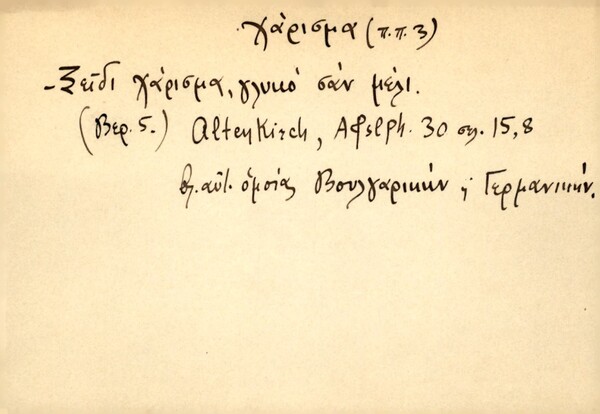 χάρισμα (π.π. 3)
- Ξεῖδι χάρισμα, γλυκό σάν μέλι.
(Βερ. 5.) Altenkirch, Afslph. 30 ση. 15,8
βλ. αὐτ. ὁμοίας Βουλγαρικήν ἤ Γερμανικήν.